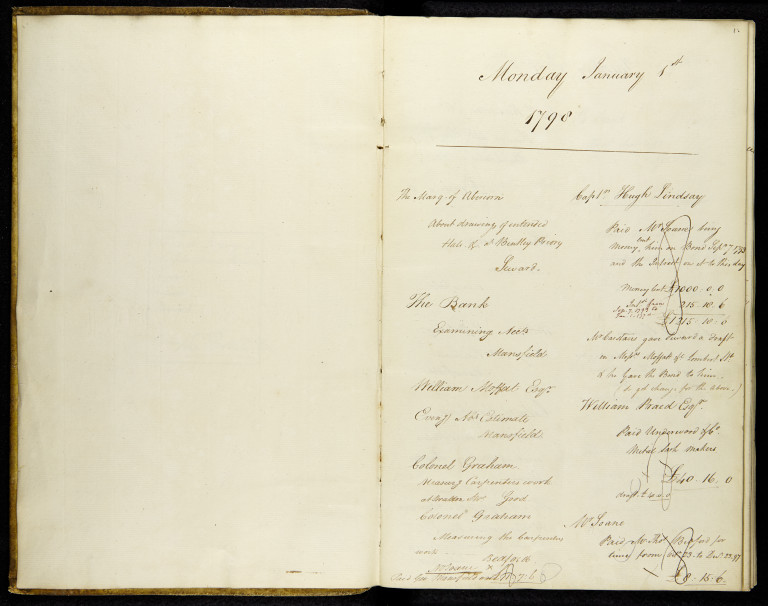 Monday January 1st
1798
The Marq. of Abercorn
About drawing of intended
Hall &c. at Bentley Priory
Seward.
The Bank
Examining Accts
Mansfield
William Moffat Esqr.
Mansfield
Colonel Graham
Measurg Carpenters work
Good
Colonel Graham
Measuring the Carpenters
work
Bedford
Captn. Hugh Lindsay
Paid Mr Soane being
Money lent him on Bond Septr. 7 1793
and the Interest on it to this day
Money lent £1000. 0. 0
Intst. from
215. 18. 6
£1215. 18. 6
gave Seward a draft
on Messrs Moffat
& he gave the Bond to him.
(to get change for the above.)
William Praed Esqr.
Paid Underwood & Co.
Metal Sash makers
£40. 16. 0
draft £40. 0. 0
Mr Soane
Paid Mr Thos. Bedford for
time from Oct 23. to Decr. 23. 97
£8. 15. 6